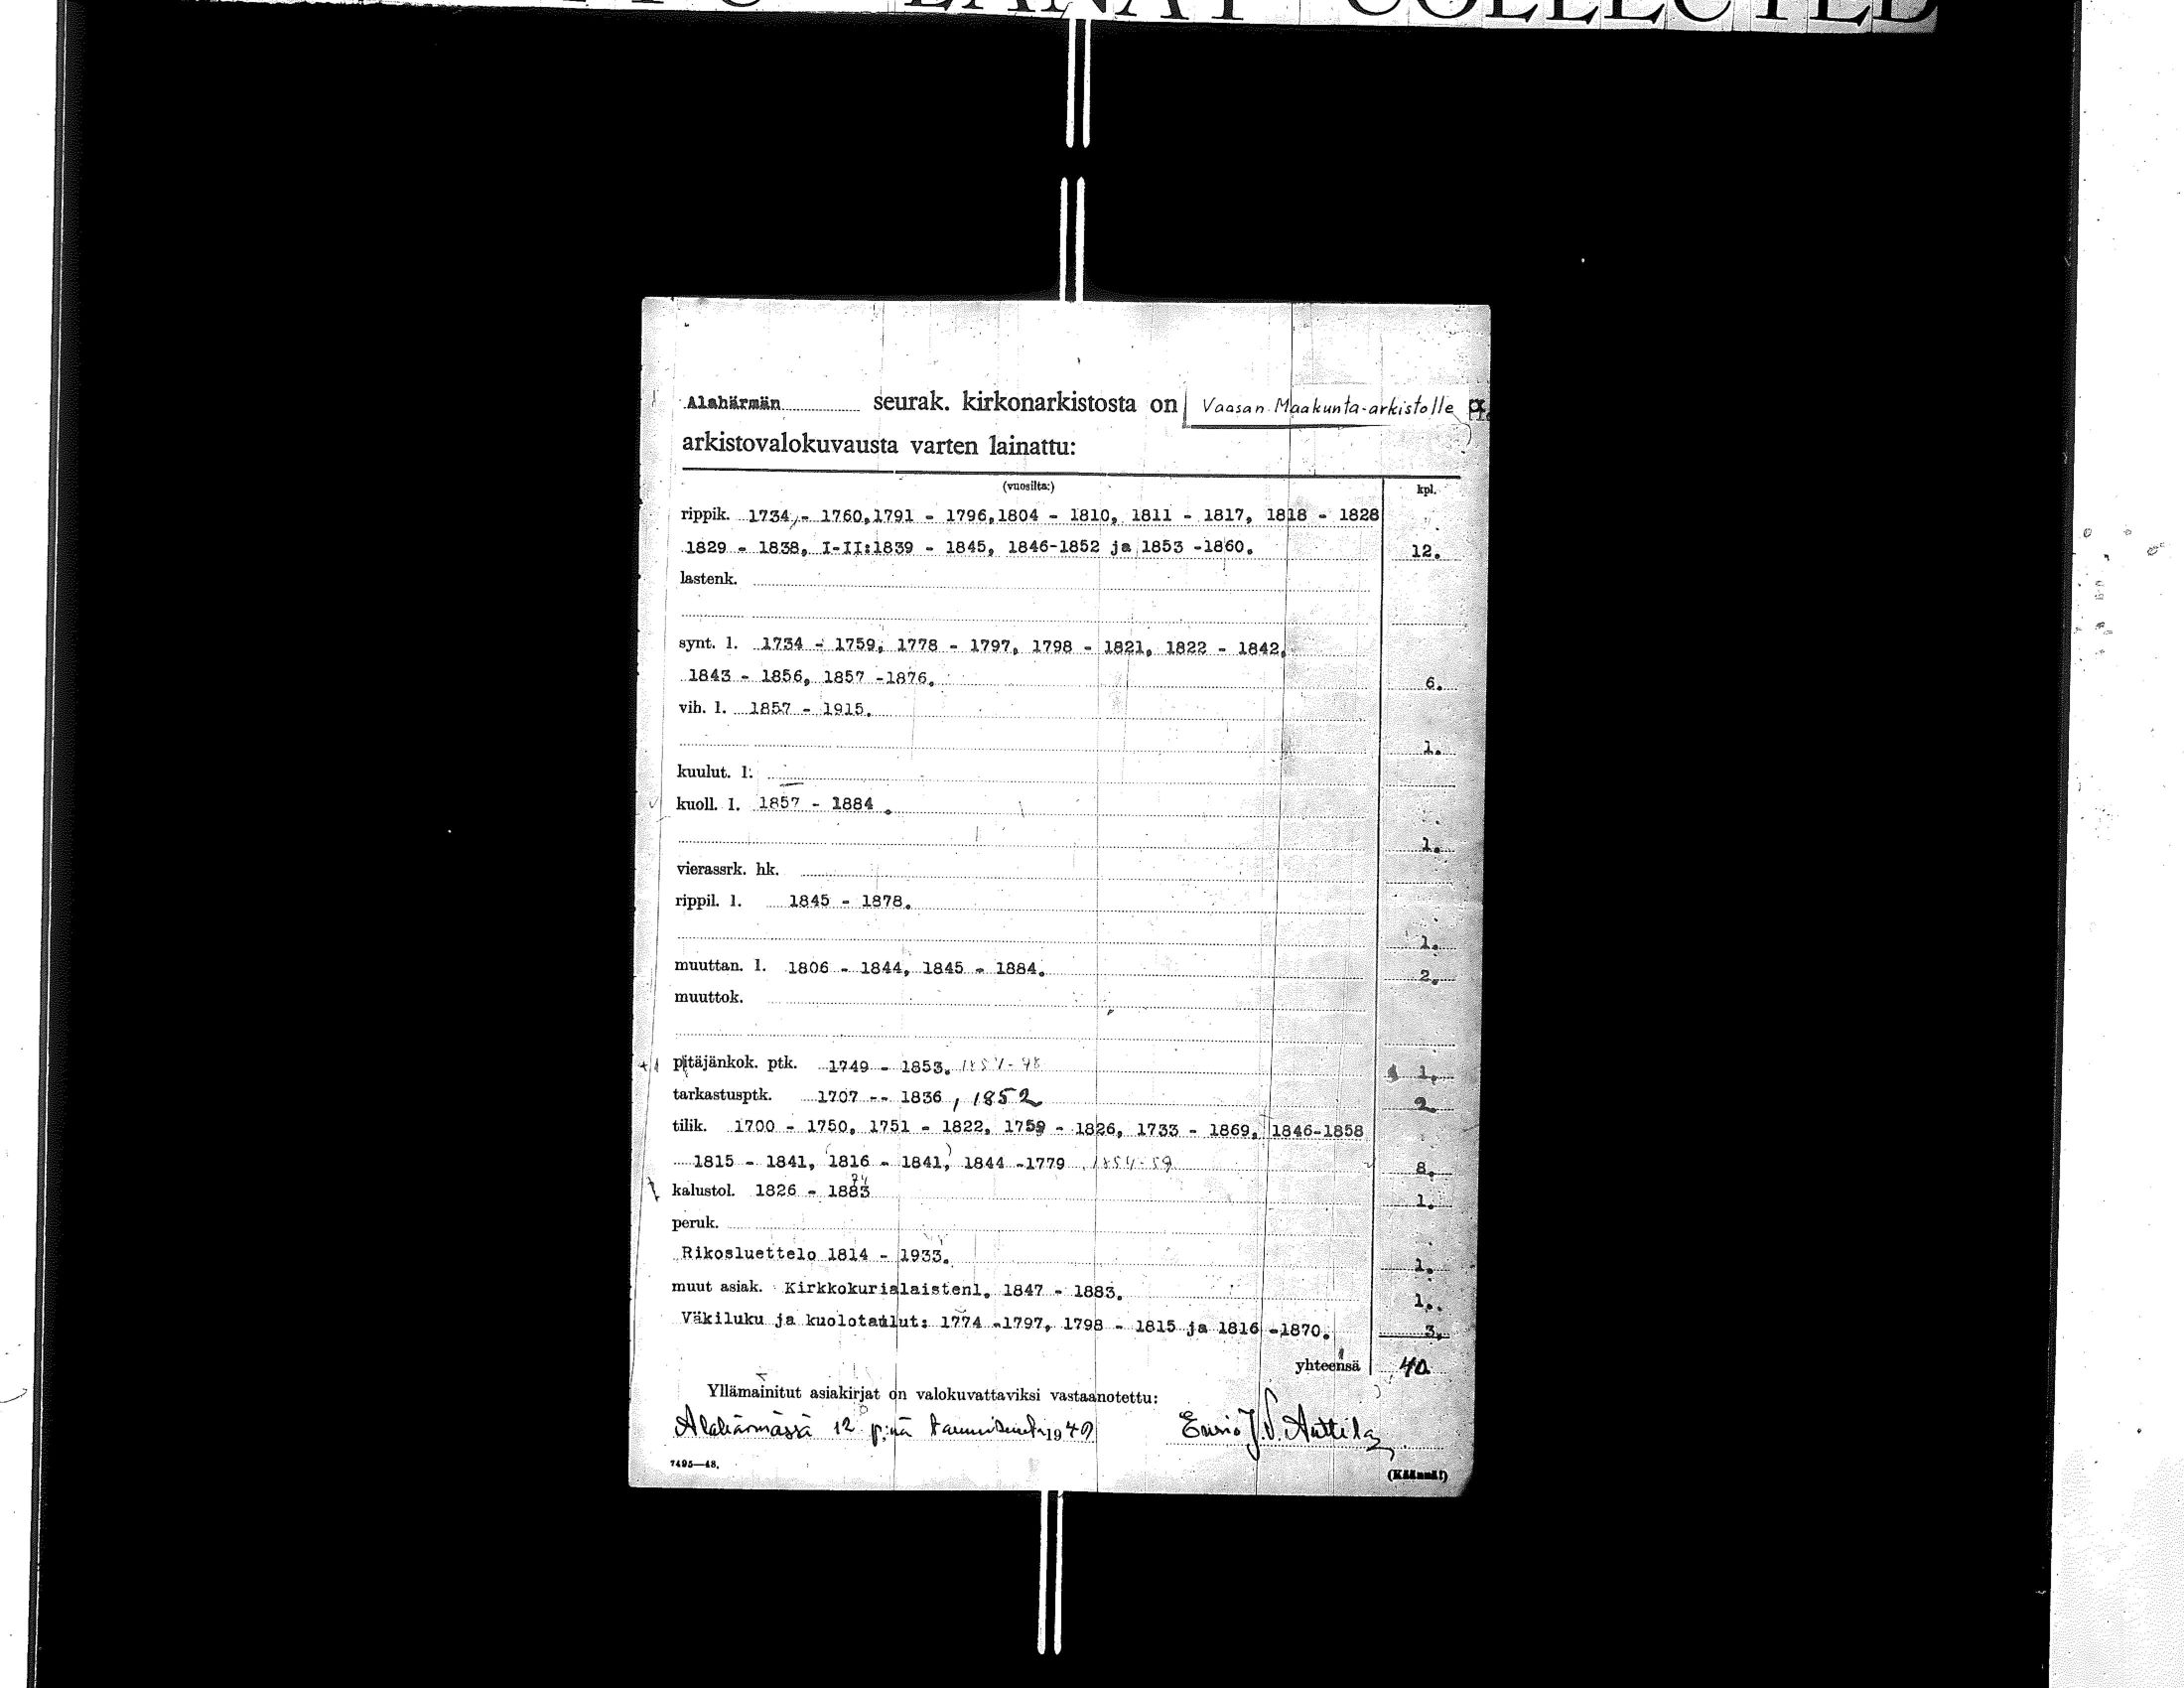 COLLECTED
Alahärmän seurak. kirkonarkistosta on Vaasan Maakunta-arkistolle
arkistovalokuvausta varten lainattu:
(vuosilta:) kpl.
rippik. 1734 - 1760, 1791 - 1796, 1804 - 1810, 1811 - 1817, 1818 - 1828
1829 - 1838, I-II:1839 - 1845, 1846-1852 ja 1853 -1860. 12.
lastenk.
synt. l. 1734 - 1759, 1778 - 1797, 1798 - 1821, 1822 - 1842,
1843 - 1856, 1857 -1876. 6.
vih. l. 1857 - 1915.
1.
kuulut. l.
kuoll. l. 1857 - 1884.
1.
vierassrk. hk.
rippil. l. 1845 - 1878.
1.
muuttan. l. 1806 - 1844, 1845 - 1884. 2.
muuttok.
pitäjänkok. ptk. 1749 - 1853. 1.
tarkastusptk. 1707 -- 1836, 1852 2
tilik. 1700 - 1750, 1751 - 1822, 1759 - 1826, 1733 - 1869, 1846-1858
1815 - 1841, 1816 - 1841, 1844 -1779 1854-59 8.
kalustol. 1826 - 1883 1.
peruk.
Rikosluettelo 1814 - 1933. 1.
muut asiak. Kirkkokurialaistenl. 1847 - 1883. 1.
Väkiluku ja kuolotaulut: 1774 -1797, 1798 - 1815 ja 1816 -1870. 3.
yhteensä 40
Yllämainitut asiakirjat on valokuvattaviksi vastaanotettu:
Alahärmässä 12 p:nä tammikuuta 1949 Ensio J.V. Anttila
7495—48. (Käännä!)